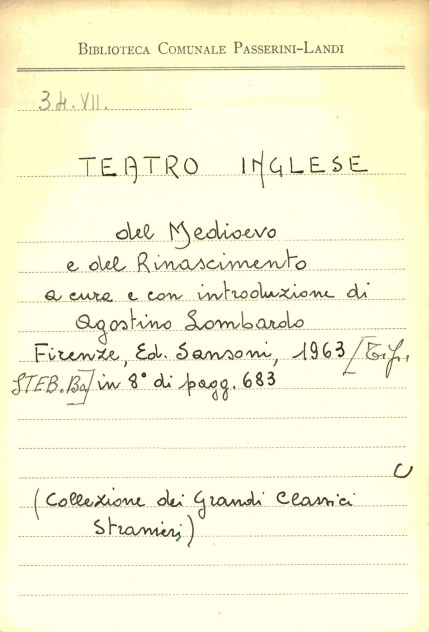 BIBLIOTECA COMUNALE PASSERINI-LANDI
34.VII.
TEATRO INGLESE
del Medioevo
e del Rinascimento
a cura e con introduzione di
Agostino Lombardo
Firenze, Ed. Sansoni, 1963 [Tip.
STEB. Bo] in 8° di pagg. 683
C
(Collezione dei Grandi Classici
Stranieri)